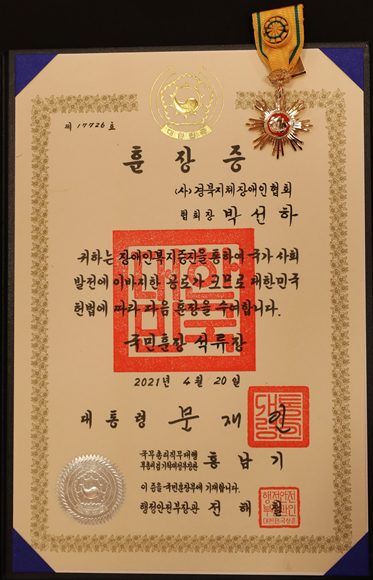 제 17726 호
훈장증
(사)경북지체장애인협회
협회장 박선하
귀하는 장애인복지증진을 통하여 국가 사회
발전에 이바지한 공로가 크므로 대한민국
헌법에 따라 다음 훈장을 수여합니다.
국민훈장 석류장
2021년 4월 20일
대통령 문재인
국무총리직무대행
부총리겸기획재정부장관 홍남기
이 증을 국민훈장부에 기재합니다.
행정안전부장관 전해철